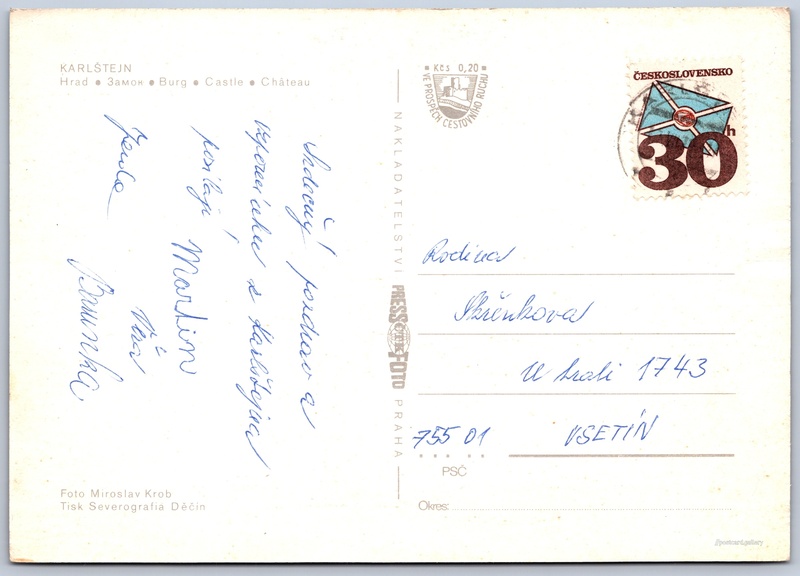 KARLŠTEJN
Hrad • Замок • Burg • Castle • Château
Srdečný pozdrav a
vzpomínku z Karlštejna
posílají
Martin
Jenda
Věra
Barunka
Foto Miroslav Krob
Tisk Severografia Děčín
NAKLADATELSTVÍ PRESSFOTO PRAHA
Kčs 0,20
VE PROSPĚCH CESTOVNÍHO RUCHU
ČESKOSLOVENSKO
30h
Rodina
Skřenkova
U trati 1743
755 01 VSETÍN
PSČ
Okres: